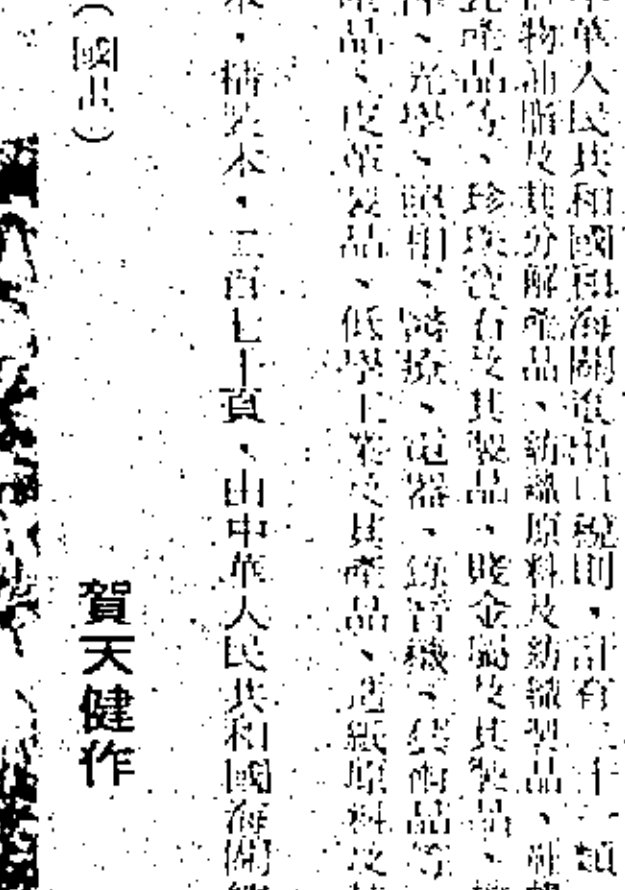 華人民共和國和海關進出口稅則，計有二十一類
物油脂及其分解產品、紡織原料及紡織製品、鞋
產品等、珍珠寶石及其製品、賤金屬及其製品、
、光學、照相、醫療、電器、錄音機、藝術品等
品、皮革製品、化學工業及其產品、造紙原料及
，精裝本，二百七十頁，由中華人民共和國海關總
（國出）
賀天健作